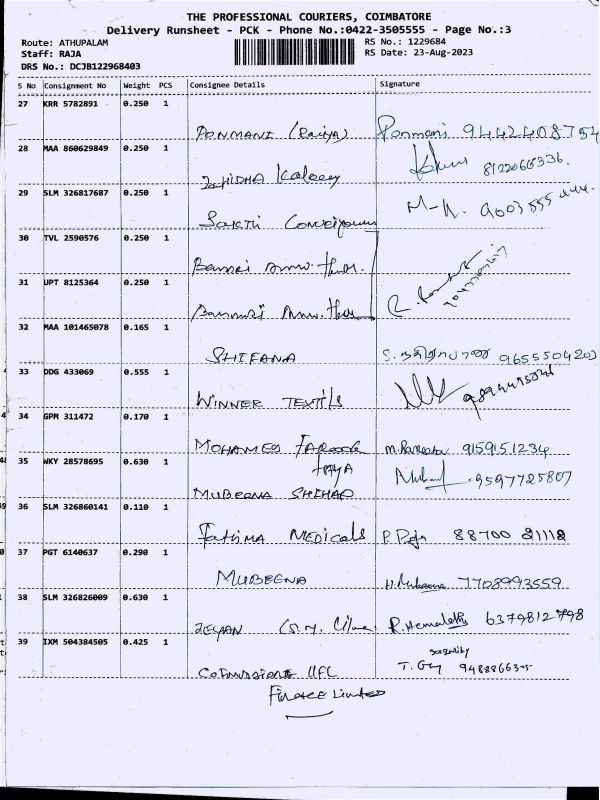 THE PROFESSIONAL COURIERS, COIMBATORE
Delivery Runsheet - PCK - Phone No.:0422-3505555 - Page No.:3
Route: ATHUPALAM
RS No.: 1229684
Staff: RAJA
RS Date: 23-Aug-2023
DRS No.: DCJB122968403
S No Consignment No Weight PCS Consignee Details Signature
27 KRR 5782891 0.250 1
PONMANI (Priya) Ponmani 9442408754
28 MAA 860629849 0.250 1
ZAHIDHA Kaleey 8122066336.
29 SLM 326817687 0.250 1
SAKTHI M-K. 9003555
30 TVL 2590576 0.250 1
Bannari Amw. thar.
31 UPT 8125364 0.250 1
Bannari Amw. thar
32 MAA 101465078 0.165 1
SHIFANA 9655504203
33 DDG 433069 0.555 1
WINNER TEXTILS
34 GPM 311472 0.170 1
MOHAMED FAROOK 9159151234
35 WKY 28578695 0.630 1
MUBEENA SHIHAD 9597725807
36 SLM 326860141 0.110 1
Fathima MEDICALS P. Raja 88700 21112
37 PGT 6140637 0.290 1
MUBEENA H. Mubeena 7708993559
38 SLM 326826009 0.630 1
ZEYAN R. Hemalatha 6379812798
39 IXM 504384505 0.425 1
security
IIFL T. Guy
Finance Limited